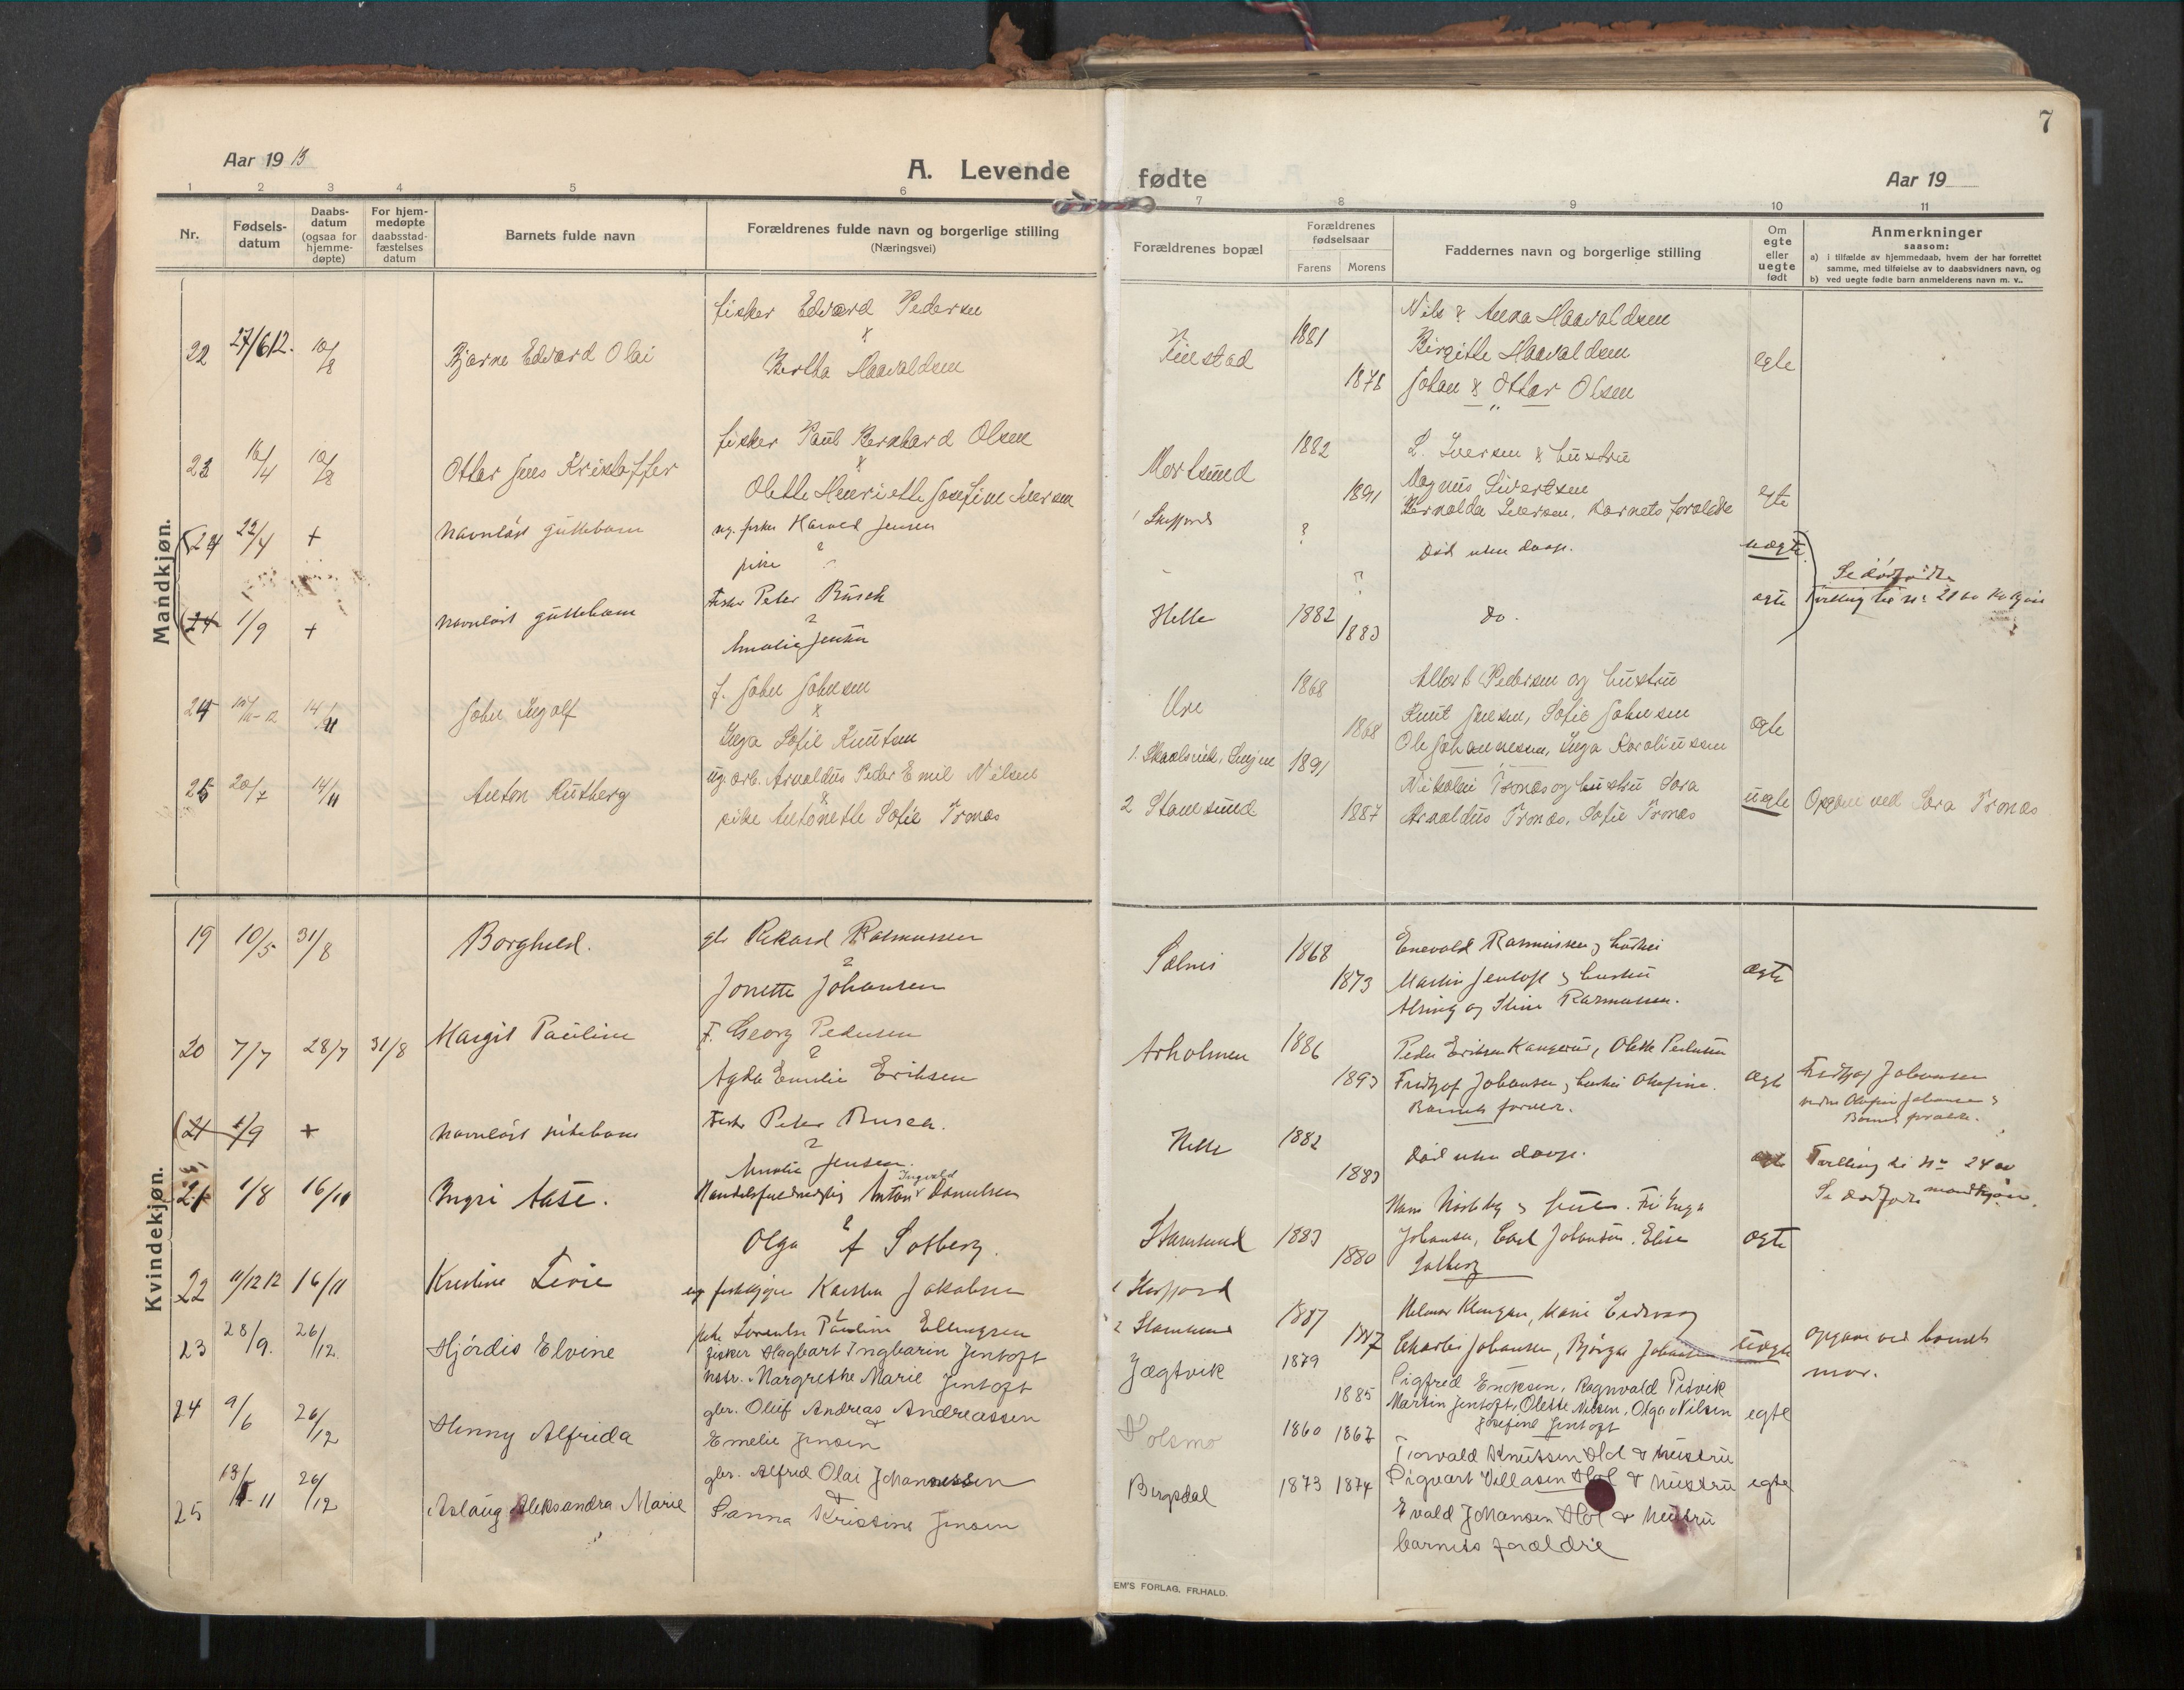 7
Aar 19 13
A. Levende fødte
Aar 19
1 2 3 4 5 6 7 8 9 10 11
Nr.
Fødsels-
datum
Daabs-
datum
(ogsaa for
hjemme-
døpte)
For hjem-
medøpte
daabsstad-
fæstelses
datum
Barnets fulde navn
Forældrenes fulde navn og borgerlige stilling
(Næringsvei)
Forældrenes bopæl
Forældrenes
fødselsaar
Farens Morens
Faddernes navn og borgerlige stilling
Om
egte
eller
uegte
født
Anmerkninger
saasom:
a) i tilfælde av hjemmedaab, hvem der har forrettet
samme, med tilføielse av to daabsvidners navn, og
b) ved uegte fødte barn anmelderens navn m. v..
Mandkjøn.
22 27/6 12. 10/8 Bjarne Edvard Olai
fisker Edvard Pedersen
&
Bertha Haavaldsen
1881
1878
Nils & Anna Haavaldsen
Birgitte Haavaldsen
Johan & Ottar Olsen
egte
23 16/4 10/8 Ottar Jens Kristoffer
fisker Paul Bernhard Olsen
&
Olette Henriette Josefine Iversen
Mortsund
1882
1891
L. Iversen & hustru
Magnus Sivertsen
Iversen, barnets forældre
egte
24 22/4 + navnløst guttebarn
ug. fisker Jensen
pike ?
1
?
?
Død uten daap.
uægte
24 1/9 + navnløst guttebarn
Fisker Peter Busch
&
Amalie Jensen
Helle
1882
1883
do.
ægte
Se dødfødte
Tvilling til nr. 21 av
24 14/11 John Ingolf
f. John Johnsen
&
Inga Sofie Knutsen
Ure
1868
1868
Albert Pedersen og hustru
Knut Jensen, Sofie Johnsen
Ole Johannesen, Inga Karoliussen
egte
25 20/7 14/11 Anton Rutberg
ug. arb. Arnoldus Peder Emil Nilsen
&
pike Antonette Sofie Tronæs
1.
2 Stamsund
1891
1887
Nikolai Tronæs og hustru Sara
Arnoldus Tronæs, Sofie Tronæs
uegte
Opgave ved Sara Tronæs
Kvindekjøn.
19 10/5 31/8 Borghild.
gbr Rikard Rasmussen
&
Jonette Johansen
1868
1873
Enevold Rasmussen & hustru
Martin Jentoft & hustru
og Stine Rasmussen.
ægte
20 7/7 28/7 31/8 Margit Pauline
F. Georg Pedersen
&
Agda Emilie Eriksen
Arholmen
1886
1893
Peder Eriksen , Olette Pedersen
Fridtjof Johansen & hustru Olufine.
Barnets foreldr.
ægte
Fridtjof Johansen
Johansen &
Barnets foreldr.
21 1/9 + navnløst pikebarn
Fisker Peter Busch.
&
Amalie Jensen.
Helle
1882
1883
Død uten daap.
ægte
Tvilling til nr 24 av
mandkjøn.
Se dødfødte
21 1/8 16/10 Ingri Aase.
Handelsfuldmægtig Anton Ingvald Danielsen
&
Olga f Solberg.
Stamsund
1883
1880
Hans & frue. Frk Inga
Johansen, Carl Johansen. Elise
Solberg
ægte
22 11/12 12 16/11 Kristine Levie
ug fiskekjøper Karsten Jakobsen
&
pike Pauline Ellingsen
1
2 Stamsund
1887
1887
Charles Johansen, Bjørga Johansen
uægte
opgave ved barnets
mor.
23 28/9. 26/12 Hjördis Elvine
fisker Hagbart Ingbarin Jentoft
hstr. Margrethe Marie Jentoft
Jægtvik
1879
1885
Sigfred Encksen, Ragnvald Pisvik
Martin Jentoft, Olette Nilsen, Olga Nilsen
Josefine Jentoft
egte
24 9/6 26/12 Hinny Alfrida
gbr. Oluf Andreas Andreassen
&
Emelie Jensen
Holsmo
1860 1867
Torvald Knutssen Hol & hustru
25 26/12 Aslaug Aleksandra Marie
gbr. Alfred Olai Johannessen
&
Sanna Kristine Jensen
Bergsdal
1873 1874
Sigvart Villasen Hol & hustru
Evald Johansen Hol & hustru
barnets forældre
egte
EM'S FORLAG, FR.HALD.